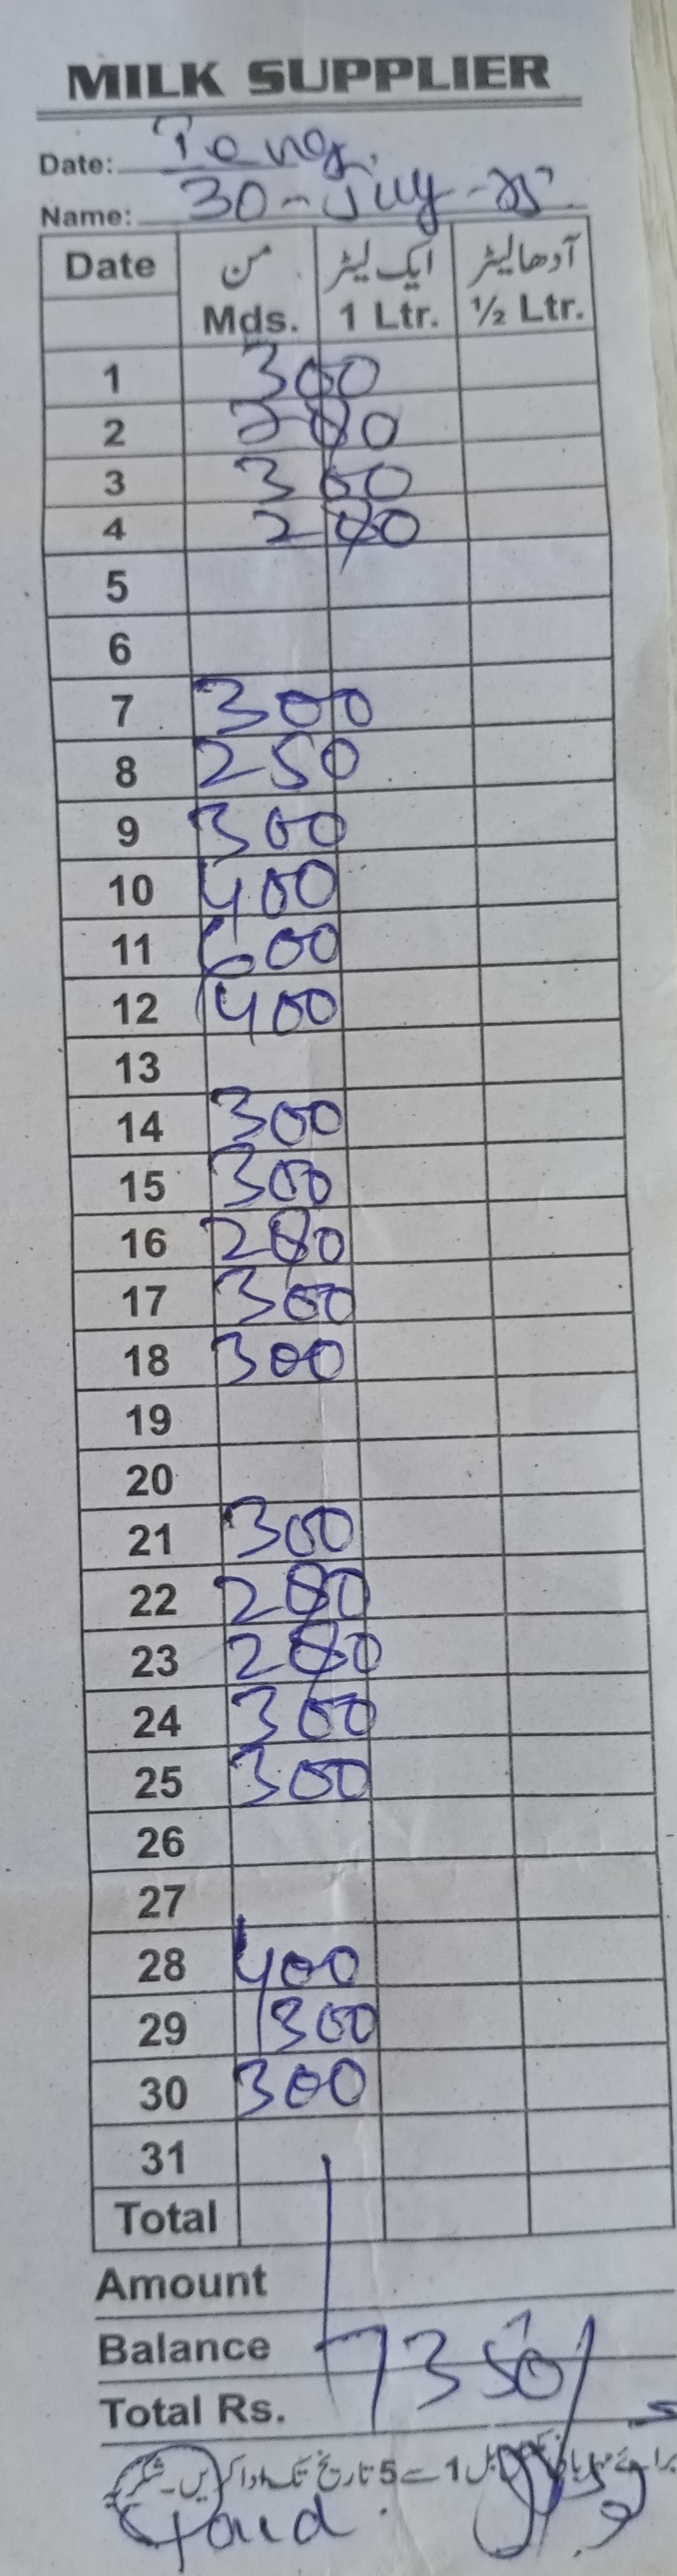 MILK SUPPLIER
Date:
Name: 30-July-25
Date من ایک لیٹر آدھا لیٹر
Mds. 1 Ltr. ½ Ltr.
1 300
2 280
3 300
4 280
5
6
7 300
8 250
9 300
10 400
11 600
12 400
13
14 300
15 300
16 280
17 300
18 300
19
20
21 300
22 280
23 280
24 300
25 300
26
27
28 400
29 300
30 300
31
Total
Amount
Balance 7350/
Total Rs.
بل 1 سے 5 تاریخ تک ادا کریں۔ شکریہ
Paid